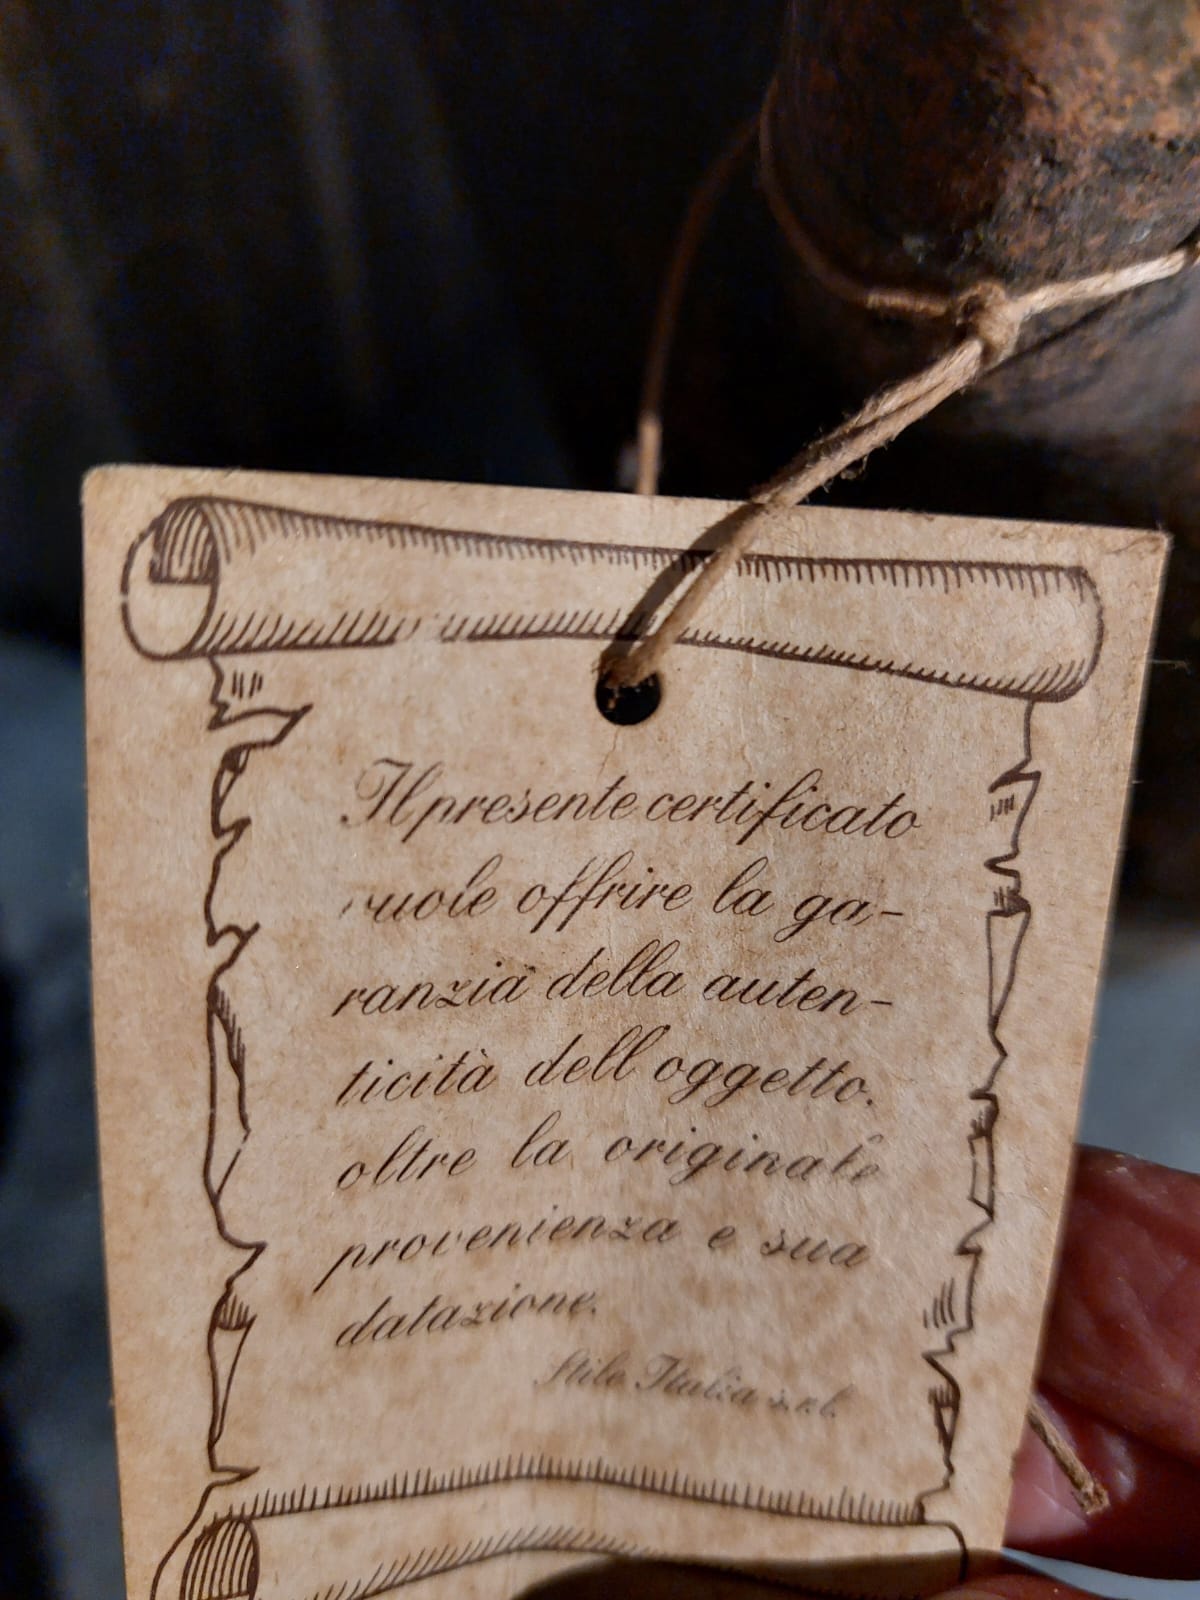 Il presente certificato
vuole offrire la ga-
ranzia della auten-
ticità dell'oggetto.
oltre la originale
provenienza e sua
datazione.
Stile Italia s.r.l.